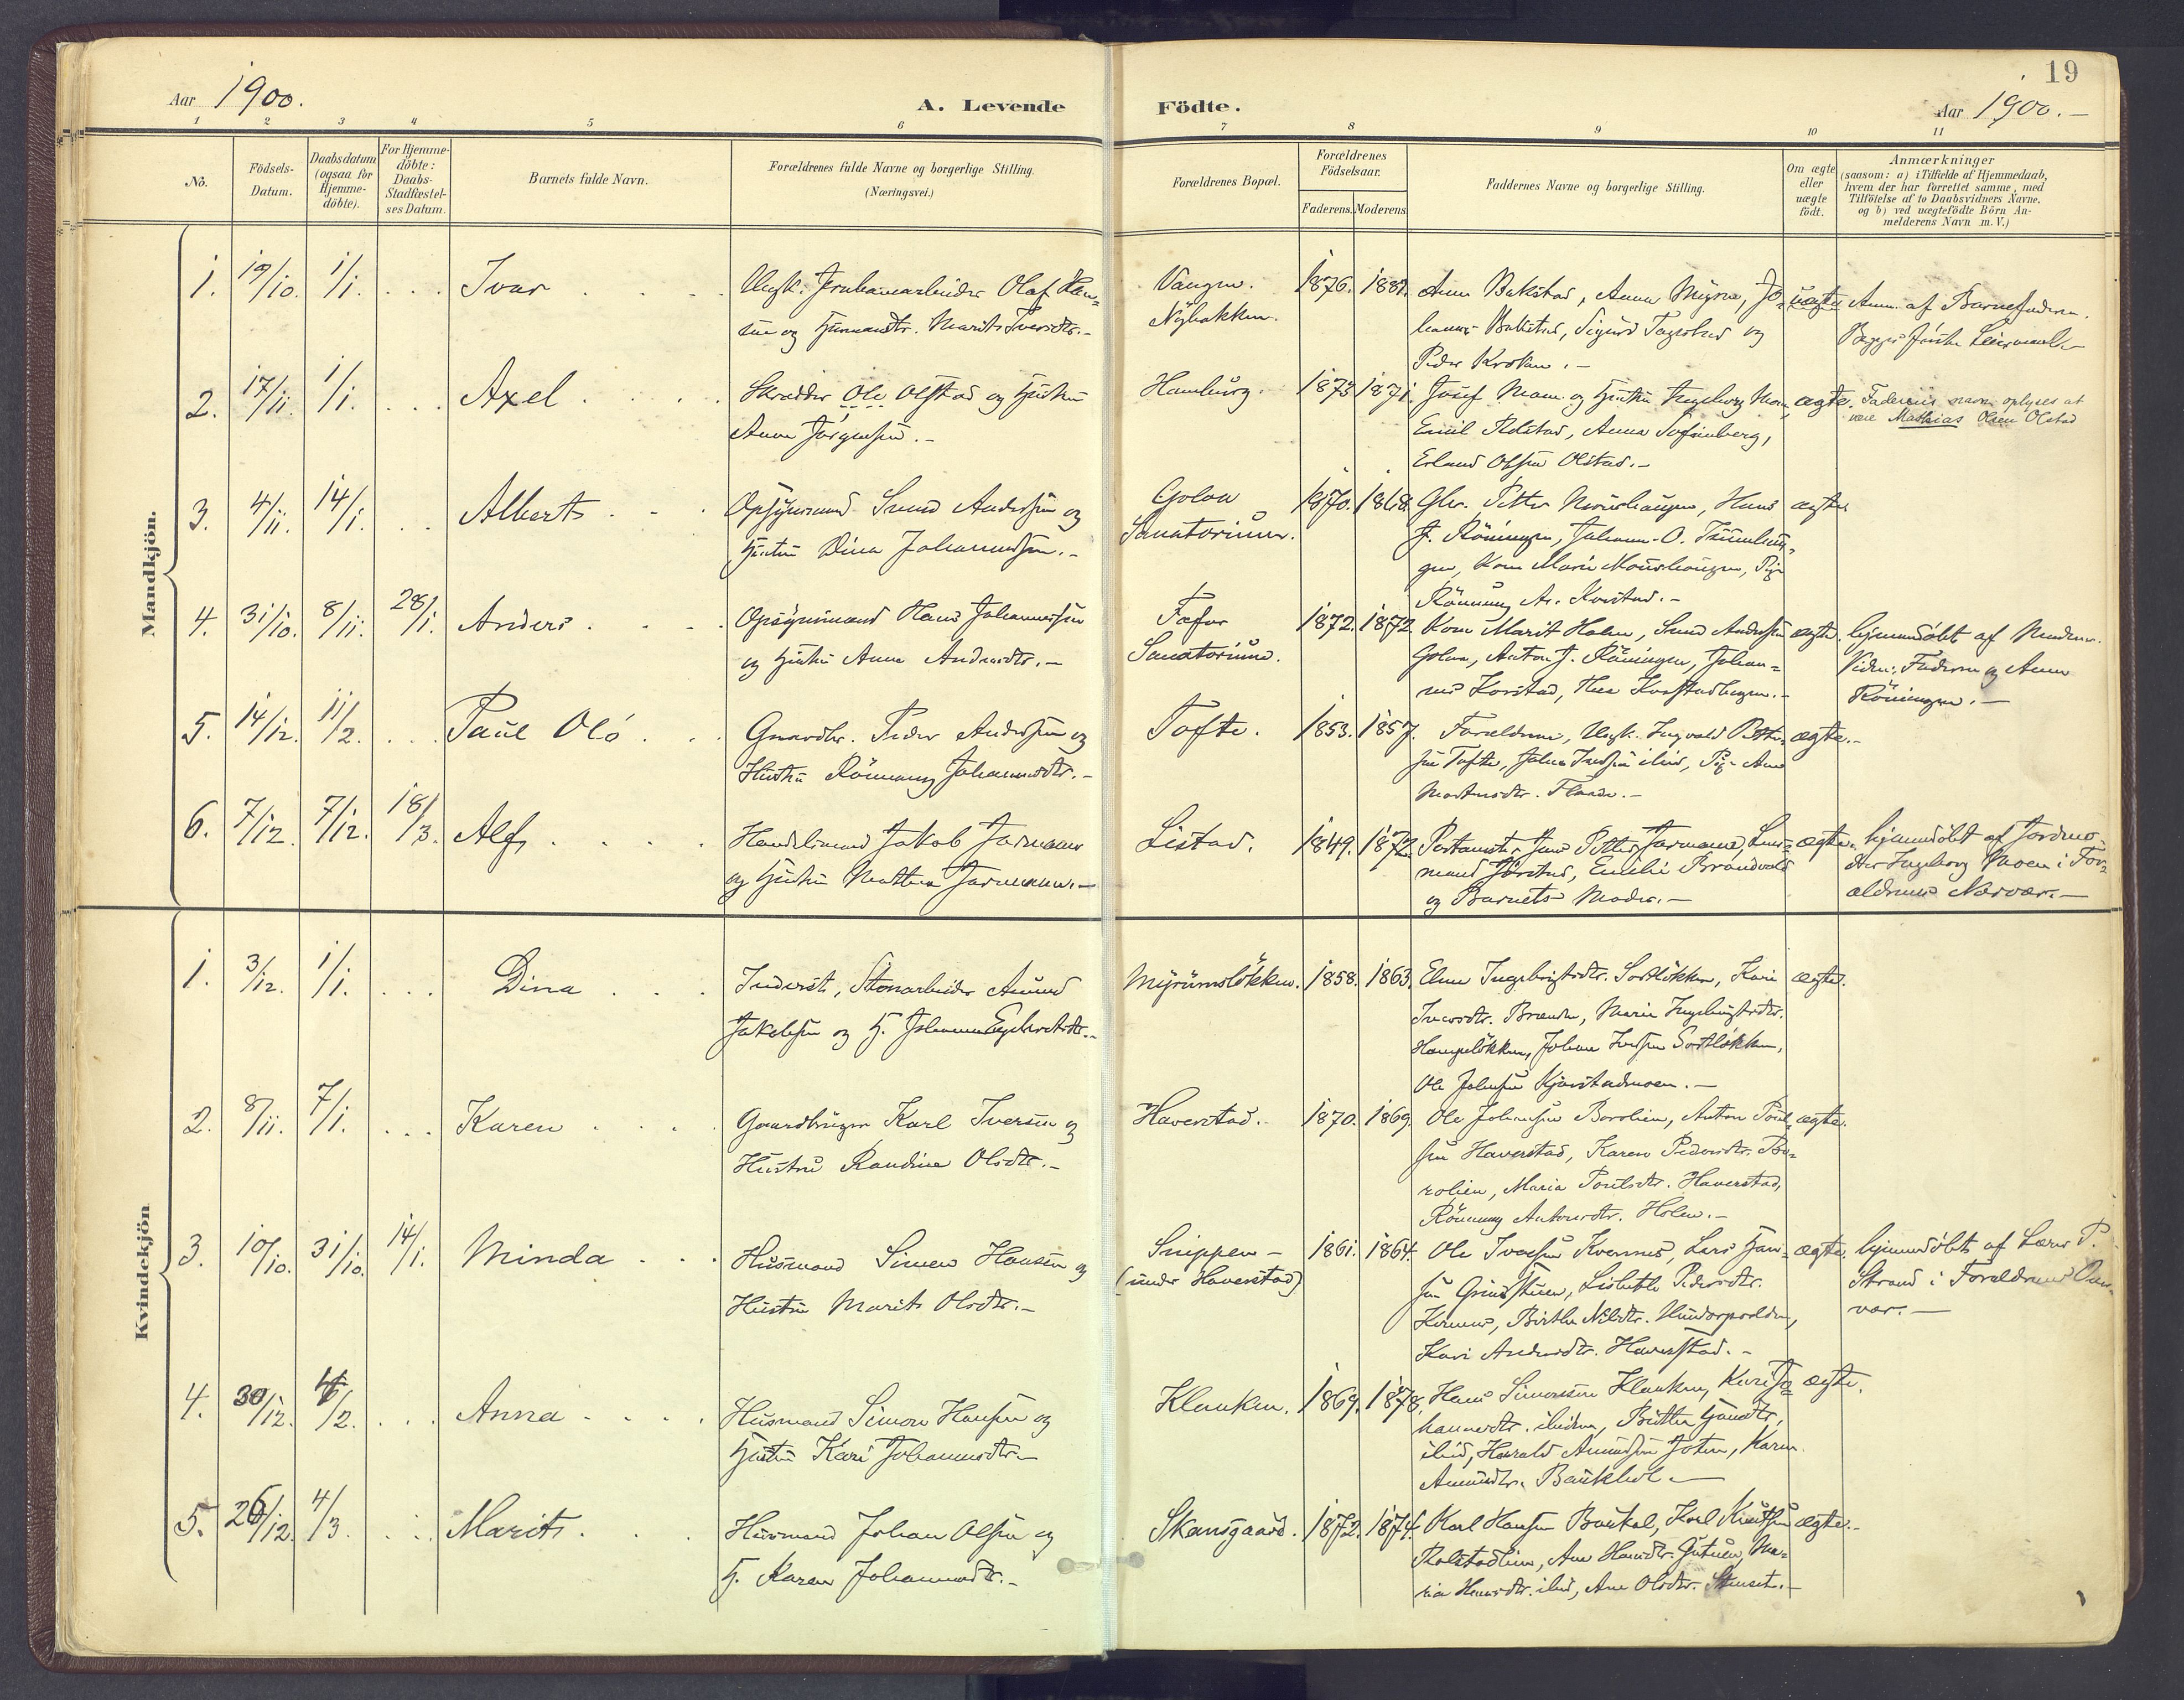 19
Aar 1900.
A. Levende Födte.
Aar 1900.-
1 2 3 4 5 6 7 8 9 10 11
No.
Födsels-
Datum.
Daabsdatum
(ogsaa for
Hjemme-
döbte).
For Hjemme-
döbte:
Daabs-
Stadfæstel-
ses Datum.
Barnets fulde Navn.
Forældrenes fulde Navne og borgerlige Stilling.
(Næringsvei.)
Forældrenes Bopæl.
Forældrenes
Födselsaar.
Faderens. Moderens.
Faddernes Navne og borgerlige Stilling.
Om ægte
eller
uægte
födt.
Anmærkninger
(saasom: a) i Tilfælde af Hjemmedaab,
hvem der har forrettet samme, med
Tilföielse af to Daabsvidners Navne.
og b) ved uægtefödte Börn An-
melderens Navn m.V.)
Mandkjön.
1. 19/10. 1/1. ... Ivar
Ungk. Olaf Han-
sen og Marit Iversdtr.-
Vangen.
Nybakken.
1876. 1881.
Anne Bakstad, Anna Myrer, Jo-
hannes Bakstad, Sigurd og
Peder Kroken.-
uægte
Anm. af Barnefaderen.
Begges förste Leiermaal
2. 17/11. 1/1. ... Axel
Skrædder Ole Olstad og Hustru
Anne Jörgensen.-
Hamburg.
1873 1871.
Josef Moen og Hustru Ingeborg Moen,
Emil Rolstad, Anna
Erland Olsen Olstad.-
ægte.
Faderens navn oplyses at
være Mathias Olsen Olstad
3. 4/11. 14/1. .. Albert
Opsynsmand Svend Andersen og
Hustru Dina Johannesen.-
Golaa
Sanatorium.
1870. 1868.
Gbr. Petter Hans
J. Röningen, Johann O.
gen, Kone Marie Pige
Rönnaug A. Korstad.-
ægte
4. 31/10. 8/11. 28/1. Anders
Opsynsmand Hans Johannessen
og Hustru Anne Andersdtr.-
Fefor
Sanatorium.
1872. 1872.
Kone Marit Holen, Svend Andersen
Golaa, Anton J. Röningen, Johan-
nes Korstad, Thea
ægte.
hjemmedöbt af Moderen.
Vidn: Faderen og Anne
Röningen.-
5. 14/12. 11/2. ... Paul Olö
Gaardbr. Peder Andersen og
Hustru Rönnaug Johannesdtr.-
Tofte.
1853. 1857.
Forældrene, Ungk. Ingvald Petter-
sen Tofte, Johan ibid, Pige Ane
Mortensdtr. Flaade.-
ægte.-
6. 7/12. 7/12. 18/3. Alf
Handelsmand Jakob Jarmann
og Hustru Mathea Jarmann.-
Listad.
1849. 1872
Jens Petter Jarmann, Lens-
mand Emilie Brandvold
og Barnets Moder.-
ægte.
hjemmedöbt af Jordmo-
der Ingeborg Moen i For-
ældrenes Nærvær.-
Kvindekjön
1. 3/12. 1/1. ... Dina
Inderst, Stenarbeider Amund
Jakobsen og H. Johanne
Myrumslökken.
1858. 1863.
Elene Ingebrigtsdtr. Kari
Iversdtr. Brenden, Marie Ingebrigtsdtr.
Haugelökken, Johan
Ole Johnsen Kjorstadmoen.-
ægte.
2. 8/11. 7/1. ... Karen
Gaardbruger Karl Iversen og
Hustru Randine Olsdtr.-
Haverstad.-
1870. 1869.
Ole Johansen Anton Poul-
sen Haverstad, Karen Pedersdtr.
Maria Poulsdtr. Haverstad,
Rönnaug Antonsdtr. Holen.-
ægte.
3. 10/10. 31/10. 14/1. Minda
Husmand Simen Hansen og
Hustru Marit Olsdtr.-
Snippen-
(under Haverstad)
1861. 1864.
Ole Iversen Lars Han-
sen Lisbeth Pedersdtr.
Birthe Nilsdtr.
Kari Andersdtr. Haverstad.-
ægte.
hjemmedöbt af Lærer P.
Strand i Forældrenes Over-
vær.-
4. 30/12. 4/2. ... Anna
Husmand Simon Hansen og
Hustru Kari Johannesdtr.-
Klanken.
1869. 1878.
Hans Simonsen Klanken, Kari Jo-
hannesdtr. ibidem, Birthe Hansdtr,
ibid, Harald Amundsen Karen
Amundsdtr. Baukhol.-
ægte.
5. 26/12. 4/3. ... Marit
Husmand Johan Olsen og
H. Karen Johannesdtr.-
Skansgaard.
1872. 1874.
Karl Hansen Baukol, Karl Knutsen
Rolstadlien, Ane Hansdtr. Ma-
ria Hansdtr. ibid, Ane Olsdtr. Stenset.-
ægte.-